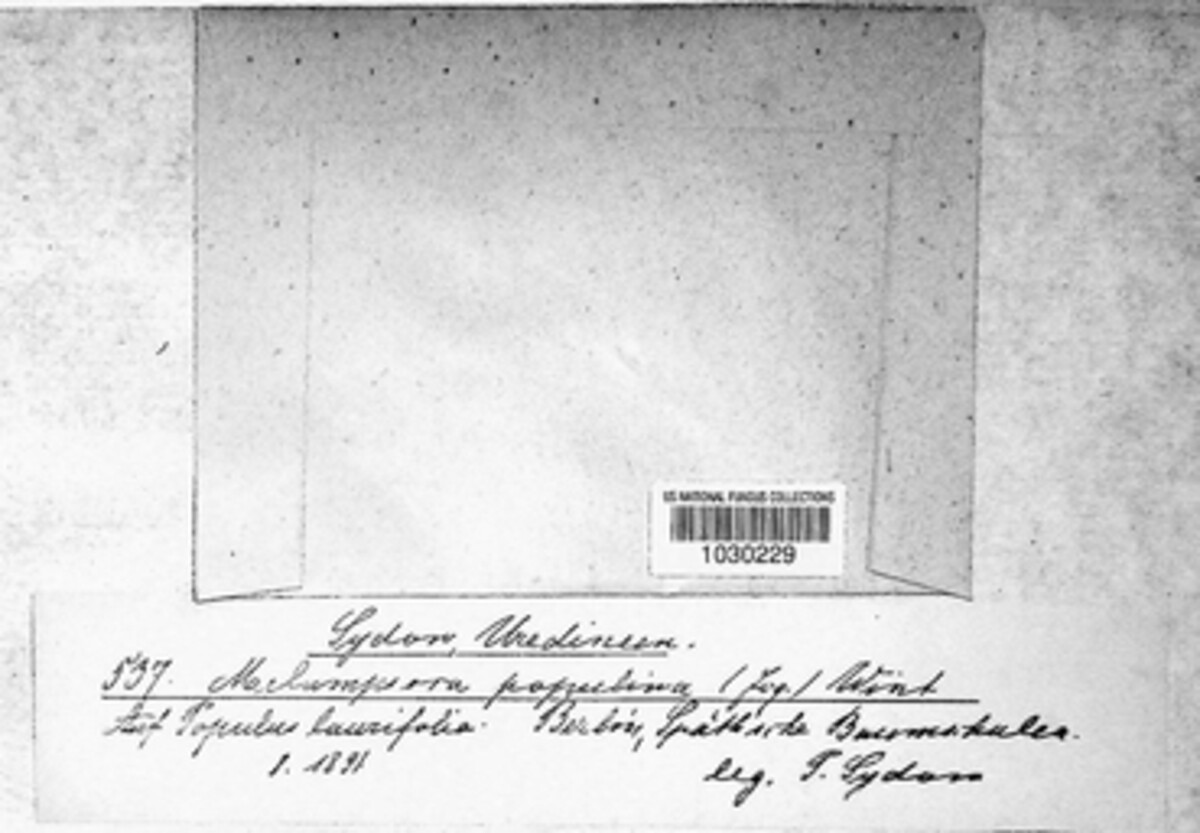 US NATIONAL FUNGUS COLLECTIONS
1030229
Sydow, Uredineen.
537. Melampsora populina (Jcq.) Wint
Auf Populus laurifolia. Berlin, Späth'sche Baumschulen.
8. 1891
leg. P. Sydow